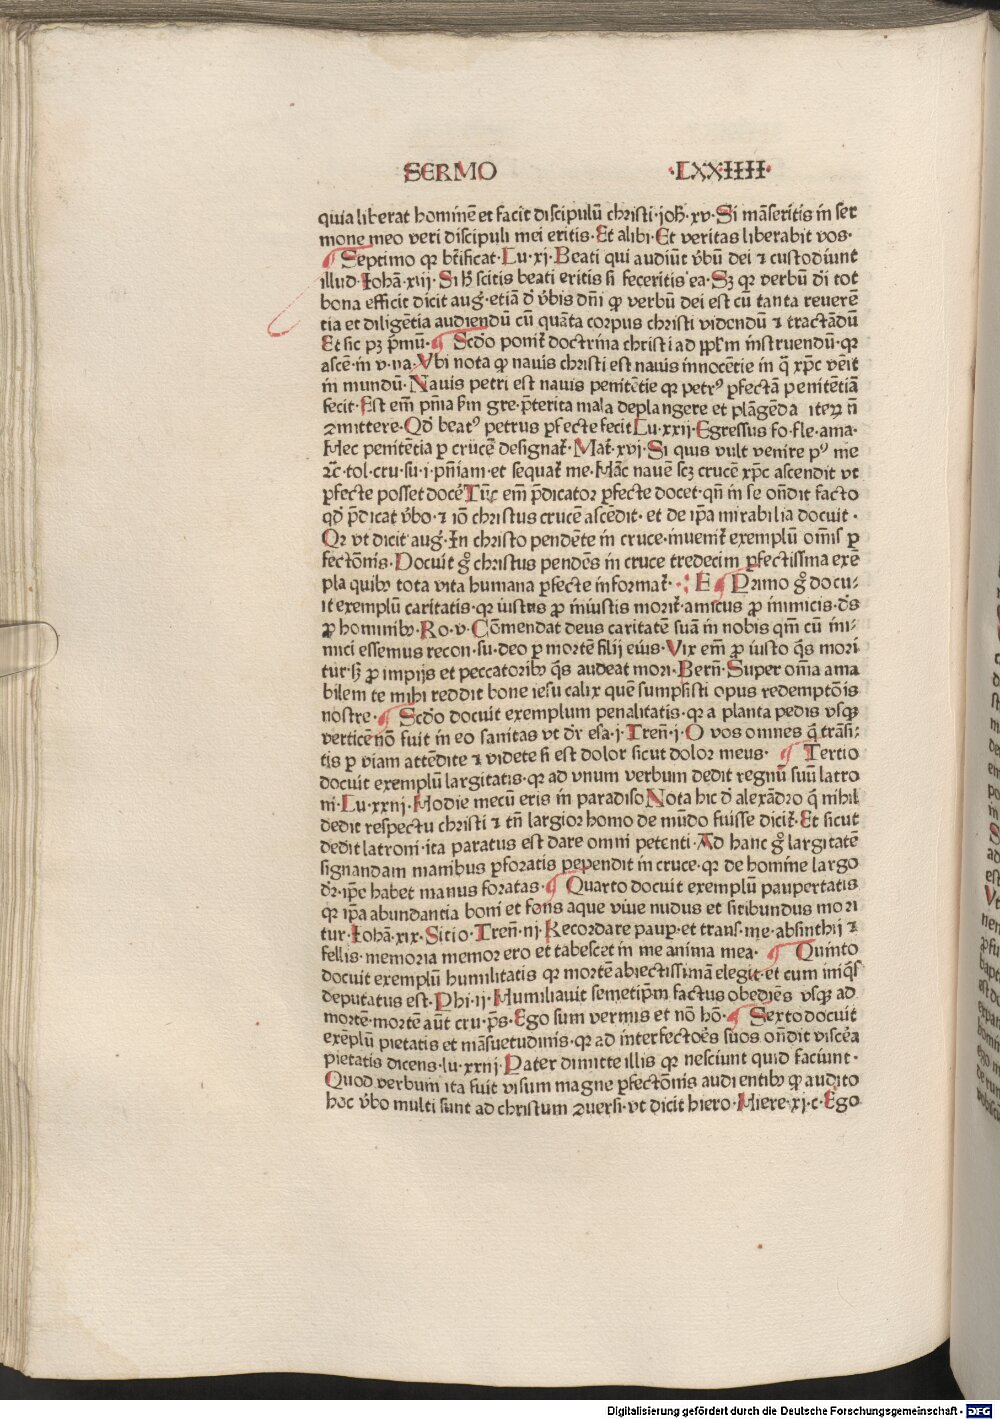 SERMO ·LXXIIII·
quia liberat hominē et facit discipulū christi·joħ·xv·Si māseritis in ser
mone meo veri discipuli mei eritis·Et alibi·Et veritas liberabit vos·
¶ Septimo qꝛ bt̄ificat·Lu·xj·Beati qui audiūt v̄bū dei ⁊ custodiunt
illud·Iohā·xiij·Si h̄ scitis beati eritis si feceritis ea·Sꝫ qꝛ verbū di tot
bona efficit dicit aug̛·etiā d̛ v̄bis dn̄i ꝙ verbū dei est cū tanta reuerē
tia et diligētia audiendū cū quāta corpus christi videndū ⁊ tractādū
Et sic pꝫ p̄mū·¶ Scd̄o ponit̛ doctrina christi ad ppl̄m instruendū·qꝛ
ascē·in v·na·Vbi nota ꝙ nauis christi est nauis innocētie in q̄ xp̄c vēit
in mundū·Nauis petri est nauis penitētie qꝛ petrꝰ ꝑfectā penitētiā
fecit·Est em̄ pn̄ia ẜm gre·p̄terita mala deplangere et plāgēda iteꝝ n̄
ꝯmittere·Qd̛ beatꝰ petrus ꝑfecte fecit Lu·xxij·Egressus fo·fle·ama·
Hec penitētia ꝑ crucē designat̛·Mat̛·xvj·Si quis vult venire pꝰ me
⁊c̄·tol·cru·su·i·pn̄iam·et sequat̛ me·Hāc nauē scꝫ crucē xp̄c ascendit vt
ꝑfecte posset docē Tūc em̄ p̄dicator ꝑfecte docet·qn̄ in se on̄dit facto
qd̛ p̄dicat v̄bo·⁊ iō christus crucē ascēdit·et de ip̄a mirabilia docuit·
Qꝛ vt dicit aug̛·In christo pendēte in cruce·inuenit̛ exemplū om̄is ꝑ
fectōnis·Docuit g̊ christus pendēs in cruce tredecim ꝑfectissima exē
pla quibꝫ tota vita humana ꝑfecte informat̛·: E ¶ Primo g̊ docu/
it exemplū caritatis·qꝛ iustus ꝓ iniustis morit̛·amicus ꝓ inimicis·d̄s
ꝓ hominibꝫ·Ro·v·Cōmendat deus caritatē suā in nobis qm̄ cū ini/
mici essemus recon·su·deo ꝑ mortē filij eius·Vix em̄ ꝓ iusto q̄s mori
tur·sꝫ ꝓ impijs et peccatoribꝫ q̄s audeat mori·Bern̄·Super om̄ia ama
bilem te mihi reddit bone iesu calix quē sumpsisti opus redemptōis
nostre·¶ Scd̄o docuit exemplum penalitatis·qꝛ a planta pedis vsqꝫ
verticē nō fuit in eo sanitas vt dr̄ esa·j·Tren̄·j·O vos omnes q̄ trāsi/
tis ꝑ viam attēdite ⁊ videte si est dolor sicut dolor meus· ¶ Tertio
docuit exemplū largitatis·qꝛ ad vnum verbum dedit regnū suū latro
ni·Lu·xxnj·Hodie mecū eris in paradiso Nota hic d̛ alexādro q̄ nihil
dedit respectu christi ⁊ tn̄ largior homo de mūdo fuisse dicit̛·Et sicut
dedit latroni·ita paratus est dare omni petenti·Ad hanc g̊ largitatē
signandam manibus ꝑforatis pependit in cruce·qꝛ de homine largo
dr̄·ip̄e habet manus foratas·¶ Quarto docuit exemplū paupertatis
qꝛ ip̄a abundantia boni et fons aque viue nudus et sitibundus mori
tur·Iohā·xix·Sitio·Tren̄·nj·Recordare pauꝑ·et trans·me·absinthij ⁊
fellis·memoria memor ero et tabescet in me anima mea· ¶ Quinto
docuit exemplū humilitatis qꝛ mortē abiectissimā elegit·et cum iniq̄s
deputatus est·Phi·ij·Humiliauit semetip̄m factus obediēs vsqꝫ ad
mortē·mortē aūt cru·p̄s·Ego sum vermis et nō hō·¶ Sexto docuit
exēplū pietatis et māsuetudinis·qꝛ ad interfectoēs suos on̄dit viscēa
pietatis dicens·lu·xxnj·Pater dimitte illis qꝛ nesciunt quid faciunt·
Quod verbum ita fuit visum magne ꝑfectōnis audientibꝫ ꝙ audito
hoc v̄bo multi sunt ad christum ꝯuersi·vt dicit hiero·Hiere·xj·c·Ego
Digitalisierung gefördert durch die Deutsche Forschungsgemeinschaft - DFG